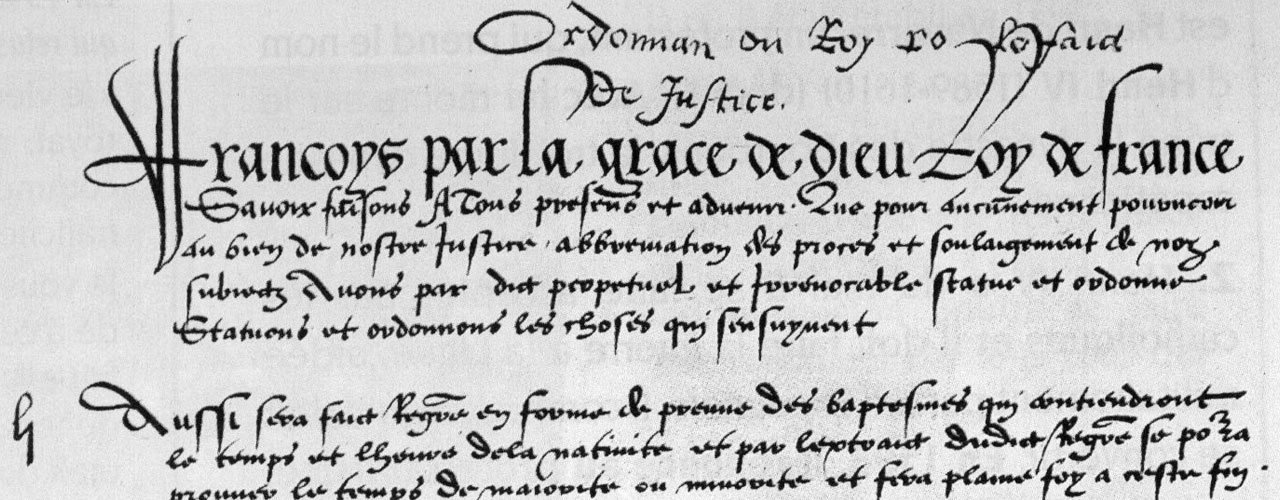 Ordonnan du Roy
De Justice.
Francoys par la grace de dieu Roy de france
Savoir faisons A Tous presens et advenir. Que pour aucunement pourveoir
au bien de nostre Justice, abbreviation des proces et soulaigement de noz
subiectz Avons par dict perpetuel et Irrevocable statue et ordonne
Statuons et ordonnons les choses qui sensuyvent
Aussi sera faict Regre en forme de preuve des baptesmes qui contiendront
le temps et lheure dela nativite et par lextraict dudict Regre se pora
prouver le temps de maiorite ou minorite et fera plaine foy a ceste fin.